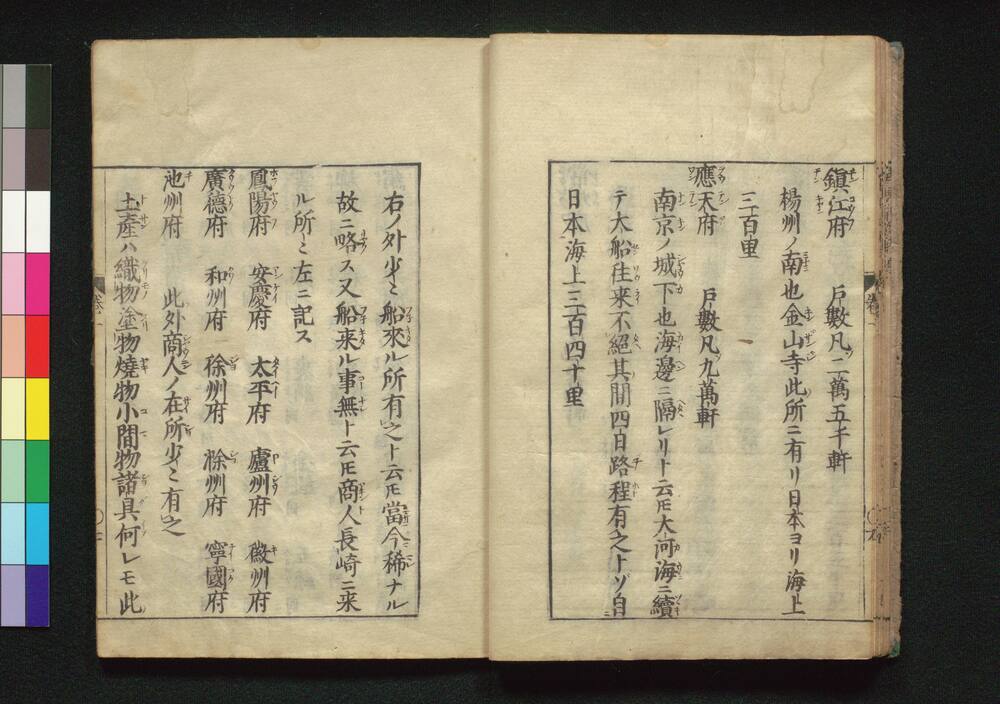 鎮江府　戸數凡二萬五千軒
楊州ノ南也金山寺此所ニ有リ日本ヨリ海上
三百里
應天府　戸數凡九萬軒
南京ノ城下也海邊ニ隔レリト云モ大河海ニ續
テ大船往来不絕其間四日路程有之トゾ自
日本海上三百四十里
右ノ外少〻船來ル所有之ト云モ當今稀ナル
故ニ略ス又船来ル事無ト云モ商人長崎ニ来
ル所〻左ニ記ス
鳳陽府　安慶府　太平府　盧州府　徽州府
廣德府　和州府　徐州府　滁州府　寧國府
池州府　此外商人ノ在所少〻有之
土產ハ織物塗物燒物小間物諸具何レモ此
卷一